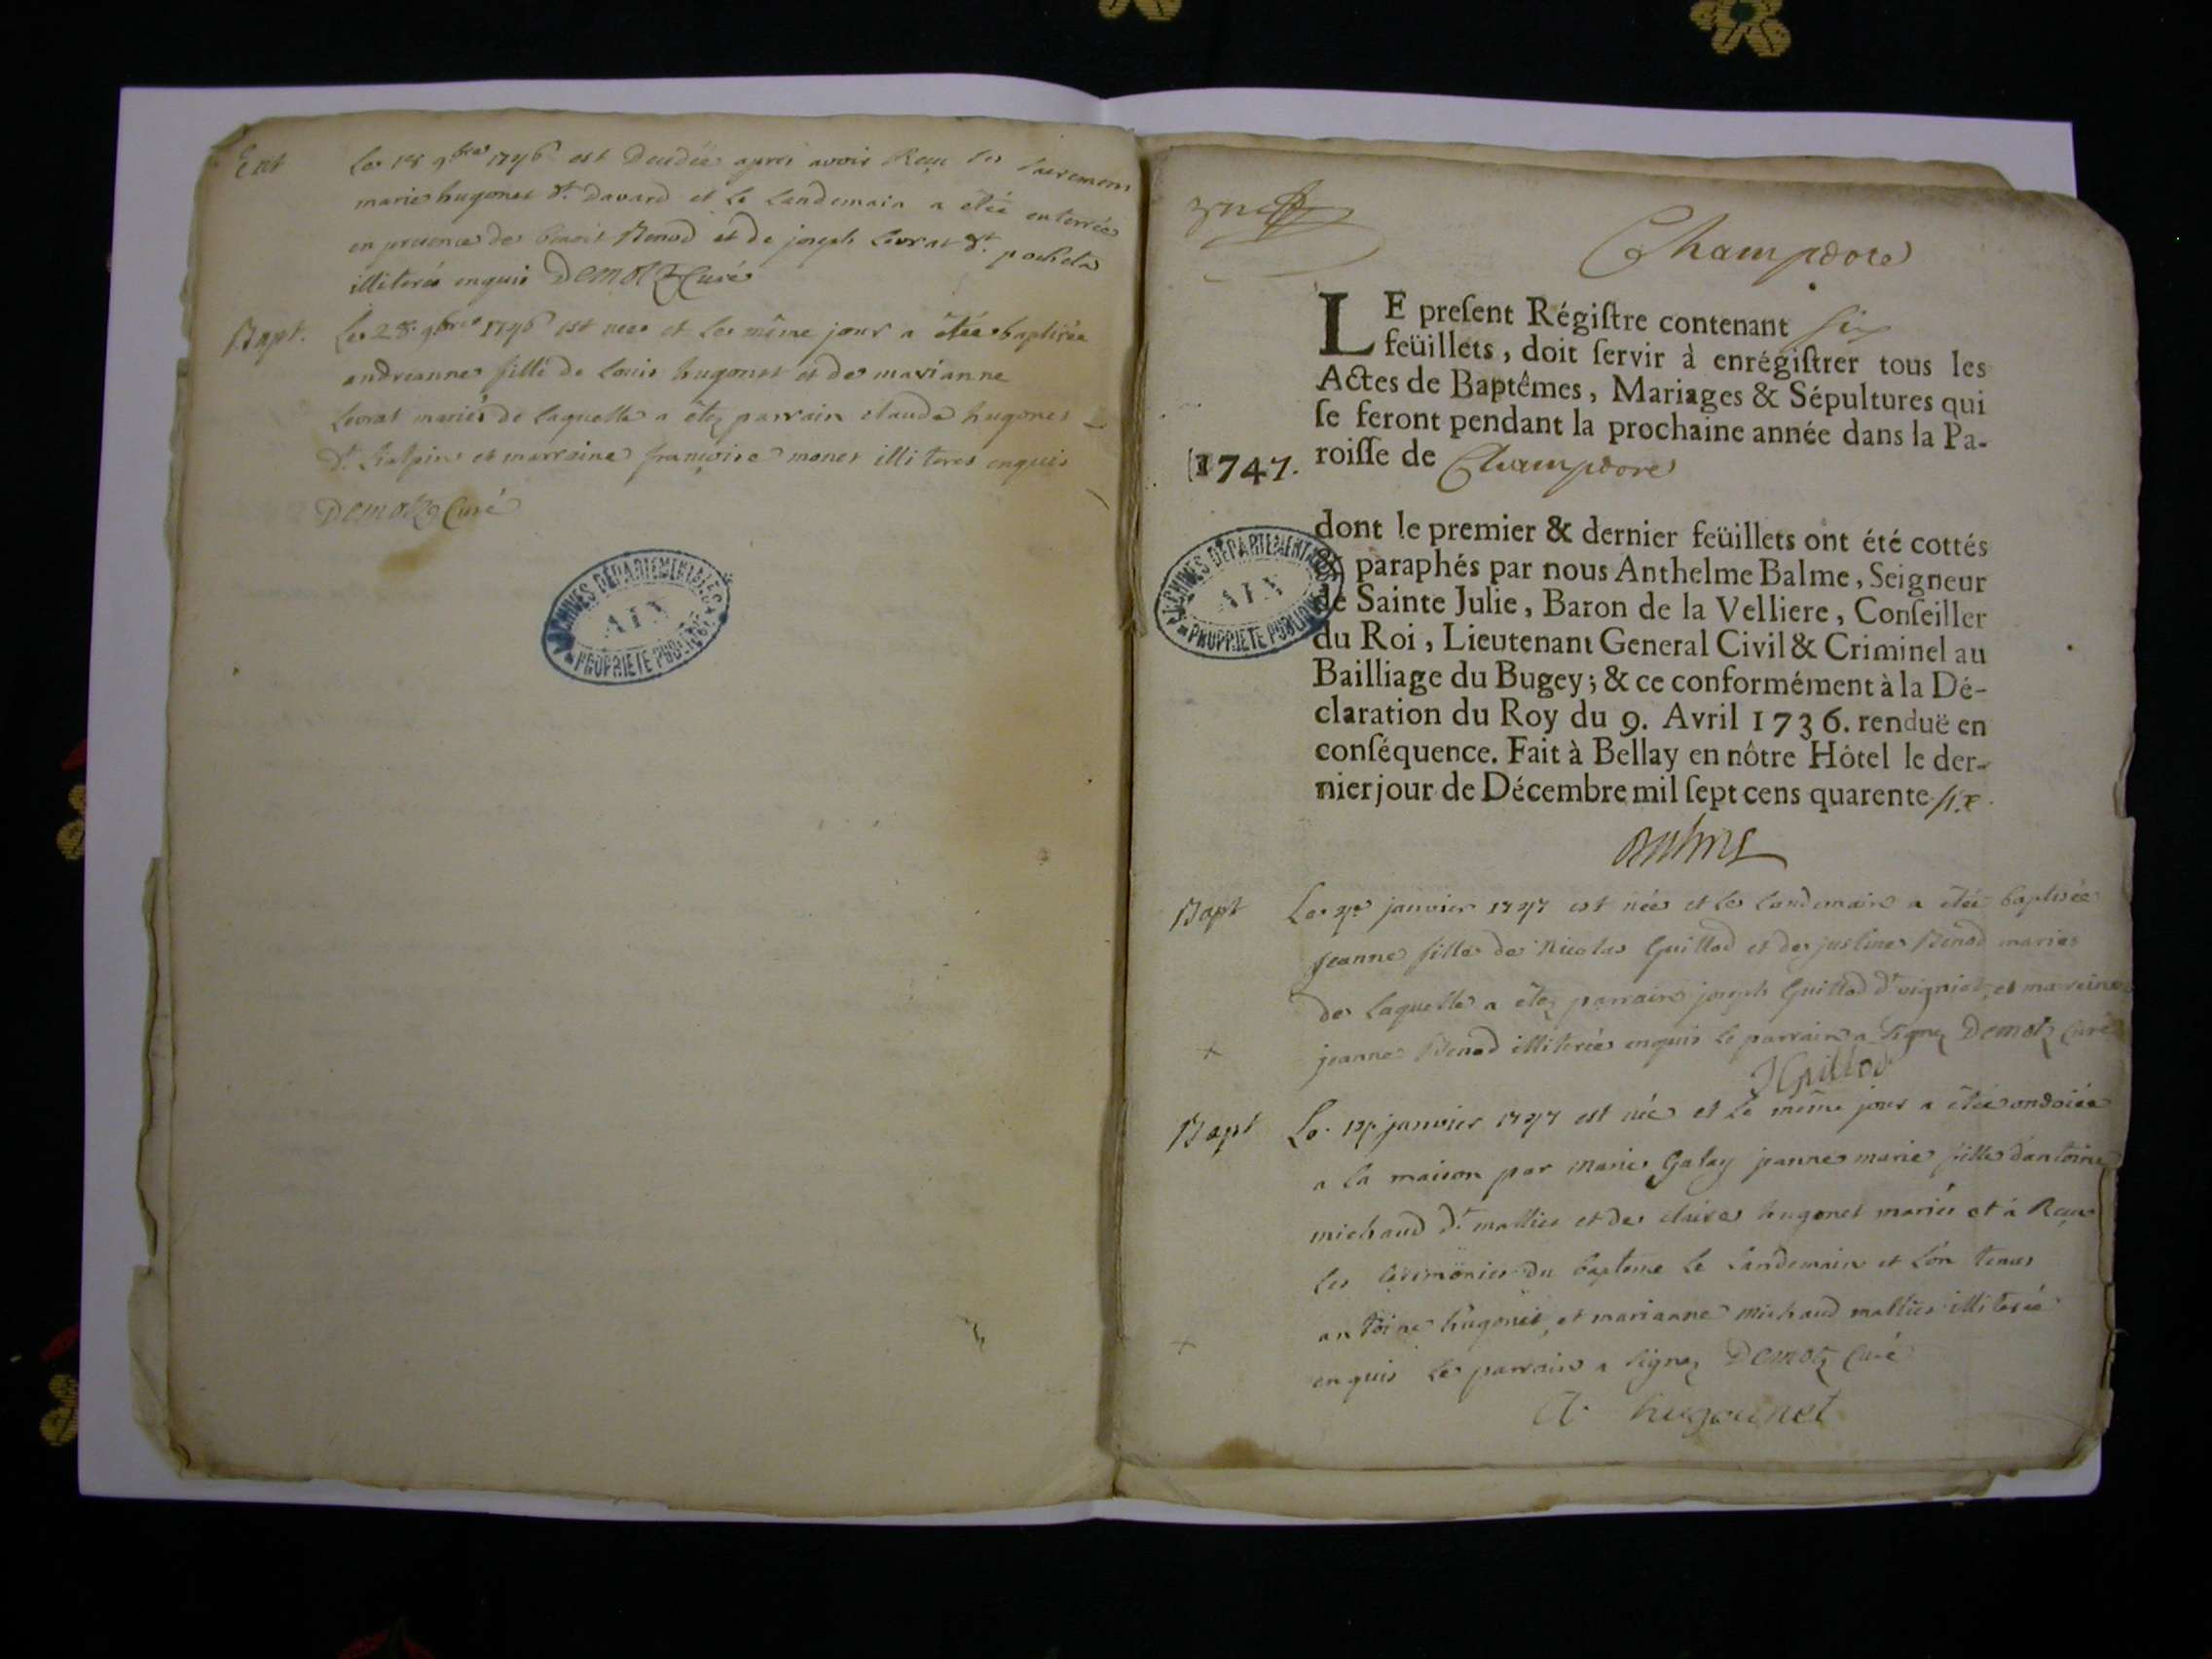 Ent
Le 18 9bre 1746 est Decedée apres avoir Reçu les sacremens
marie hugonet dt. Davard et le Landemain a etée enterrée
en presence de Benoit Benod et de joseph Levrat dt. pocheta
illiterés enquis Demotz Curé
Bapt.
Le 28. 9bre 1746 est nee et le même jour a êtée baptisée
andreanne fille de Louis hugonet et de marianne
Levrat mariés de laquelle a êtez parrain claude hugonet
et marraine françoise monet illiteres enquis
Demotz Curé
ARCHIVES DÉPARTEMENTALES
AIN
PROPRIETE PUBLIQUE
Champdore
LE preſent Régiſtre contenant six
feüillets, doit ſervir à enrégiſtrer tous les
Actes de Baptêmes, Mariages & Sépultures qui
ſe feront pendant la prochaine année dans la Pa-
1747. roiſſe de Champdore
dont le premier & dernier feüillets ont été cottés
& paraphés par nous Anthelme Balme, Seigneur
de Sainte Julie, Baron de la Velliere, Conſeiller
du Roi, Lieutenant General Civil & Criminel au
Bailliage du Bugey; & ce conformément à la Dé-
claration du Roy du 9. Avril 1736. renduë en
conſéquence. Fait à Bellay en nôtre Hôtel le der-
nier jour de Décembre mil ſept cens quarente six.
ARCHIVES DÉPARTEMENTALES
AIN
PROPRIETE PUBLIQUE
Bapt
Le janvier 1747 est née et le landemain a etée baptisée
jeanne fille de Nicolas Guillod et de justine Benod mariés
de laquelle a êtez parrain joseph Guillod dt vigniat, et marraine
jeanne Benod illiterée enquis le parrain a signez Demotz Curé
J Guillod
Bapt
Le 14 janvier 1747 est née et le même jour a êtée ondoiée
a la maison par marie Galay jeanne marie fille dantoine
michaud dt mallier et de claire hugonet mariés et a Reçu
les cerimonies du bapteme le Landemain et lon tenu
antoine hugonet, et marianne michaud mallier illiterée
enquis le parrain a signez Demotz Curé
A. hugounet